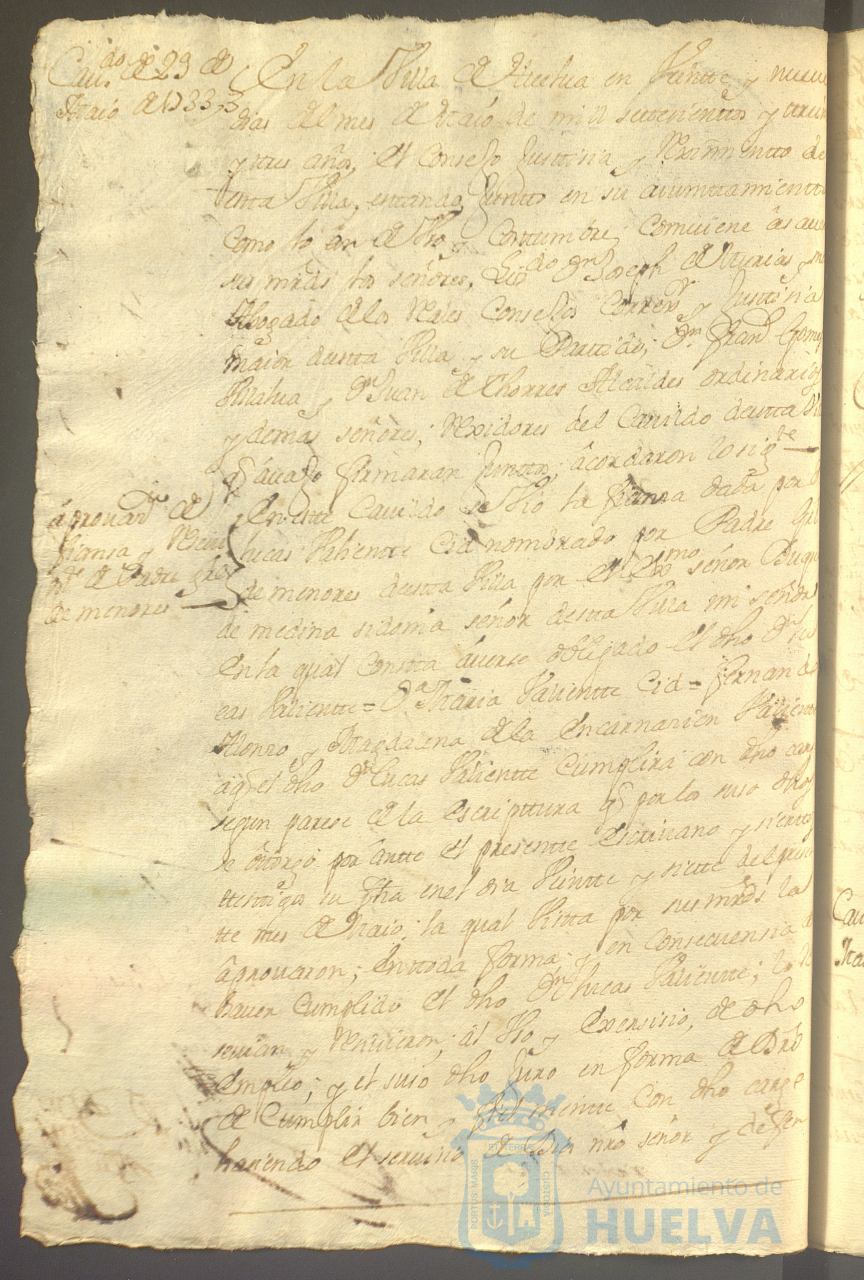 Cau.do de 29 de
Maio de 1733
En la Villa de Huelua en Veintte y nueue
dias del mes de Maio de mil settecienttos y trein
y tres años, el Consejo Justisia y Reximientto de
estta Villa, estando Juntto en su aiunttamientto
como lo an de Vso y Costtumbre, combiene a sauer
sus mrds los señores, Lizdo Dn Joseph de Asturias
Abogado de los Rs Consejos Correxor y Justtisia
maior destta Villa y su Parttido, Dn Franco Gomez
Villalua y Dn Juan de Thorres Alcaldes ordinarios
y demas señores, Rexidores del Cauildo destta Va
q acauajo firmaran Junttos, acordaron lo sigte
aprouazn de
fiansa y Reciui
de Padre gral
de menores
En este Cauildo se vio la fiansa dada por
Lucas Valientte Cid nombrado por Padre Gral
de menores destta Villa por el Exmo señor Duque
de medina sidonia señor destta Villa mi señor
en la qual constta auerse obligado el dho Dn Lu
cas Valientte = Da Maria Valientte Cid = Fernando
Alonso y Magdalena de la Encarnazion Valientte
a q el dho Dn Lucas Valientte Cumplira con dho cargo
segun parese de la escripttura q por los suso dhos
se ottorgo por antte el presentte escriuano y siertos
testtigos su fha en el dia Veintte y siette del presen
te mes de Maio, la qual Vistta por sus mrds la
aprouaron, en ttoda forma y en consecuensia de
hauer Cumplido el dho Dn Lucas Valientte, lo
reciuian y Reciuieron, al Vso y exersisio, de dho
empleo, y el suso dho Juro en forma de Dro
de Cumplir bien y fielmente con dho cargo
hasiendo el seruisio de Dios nro señor y de
Ayuntamiento de
HUELVA